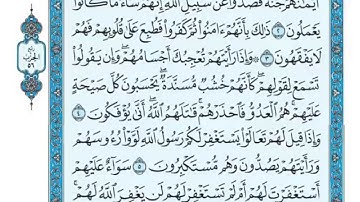 أَيْمَٰنَهُمْ جُنَّةً فَصَدُّوا۟ عَن سَبِيلِ ٱللَّهِ إِنَّهُمْ سَآءَ مَا كَانُوا۟
يَعْمَلُونَ ٢ ذَٰلِكَ بِأَنَّهُمْ ءَامَنُوا۟ ثُمَّ كَفَرُوا۟ فَطُبِعَ عَلَىٰ قُلُوبِهِمْ فَهُمْ
لَا يَفْقَهُونَ ٣ ۞ وَإِذَا رَأَيْتَهُمْ تُعْجِبُكَ أَجْسَامُهُمْ وَإِن يَقُولُوا۟
تَسْمَعْ لِقَوْلِهِمْ كَأَنَّهُمْ خُشُبٌ مُّسَنَّدَةٌ يَحْسَبُونَ كُلَّ صَيْحَةٍ
عَلَيْهِمْ هُمُ ٱلْعَدُوُّ فَٱحْذَرْهُمْ قَٰتَلَهُمُ ٱللَّهُ أَنَّىٰ يُؤْفَكُونَ ٤
وَإِذَا قِيلَ لَهُمْ تَعَالَوْا۟ يَسْتَغْفِرْ لَكُمْ رَسُولُ ٱللَّهِ لَوَّوْا۟ رُءُوسَهُمْ
وَرَأَيْتَهُمْ يَصُدُّونَ وَهُم مُّسْتَكْبِرُونَ ٥ سَوَآءٌ عَلَيْهِمْ
أَسْتَغْفَرْتَ لَهُمْ أَمْ لَمْ تَسْتَغْفِرْ لَهُمْ لَن يَغْفِرَ ٱللَّهُ لَهُمْ